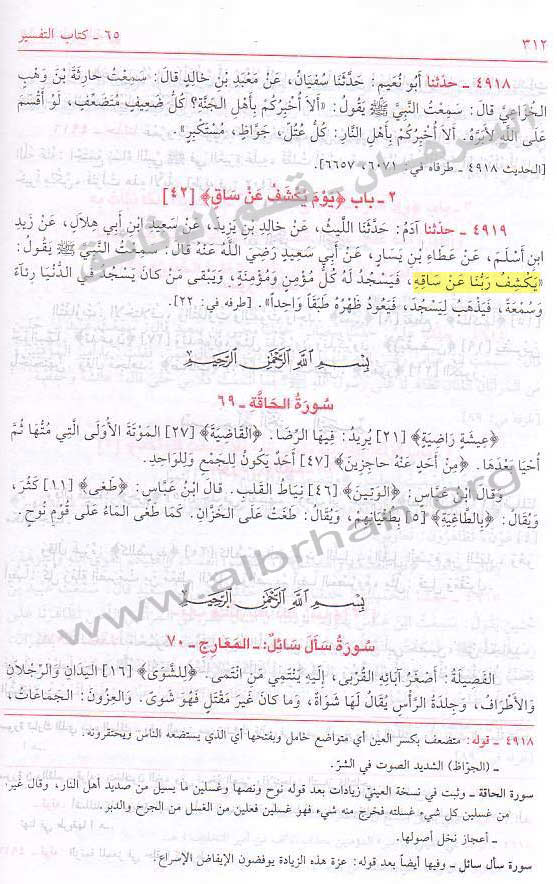 ٣١٢
٦٥ - كتاب التفسير
٤٩١٨ - حدّثنا أَبُو نُعَيم: حَدَّثَنَا سُفيَانُ، عَنْ مَعْبَدِ بْنِ خالِدٍ قالَ: سَمِعْتُ حارِثَةَ بْنَ وَهْبٍ
الخُزَاعِيَّ قالَ: سَمِعْتُ النَّبِيَّ ﷺ يَقُولُ: «أَلاَ أُخْبِرُكُمْ بِأَهْلِ الجَنَّةِ؟ كُلُّ ضَعِيفٍ مُتَضَعِّفٍ، لَوْ أَقْسَمَ
عَلَى اللَّهِ لأَبَرَّهُ. أَلاَ أُخْبِرُكُمْ بِأَهْلِ النَّارِ: كُلُّ عُتُلٍّ، جَوَّاظٍ، مُسْتَكْبِرٍ».
[الحديث ٤٩١٨ - طرفاه في: ٦٠٧١، ٦٦٥٧].
٢ - باب ﴿يَوْمَ يُكْشَفُ عَنْ سَاقٍ﴾ [٤٢]
٤٩١٩ - حدّثنا آدَمُ: حَدَّثَنَا اللَّيثُ، عَنْ خالِدِ بْنِ يَزِيدَ، عَنْ سَعِيدِ ابْنِ أَبِي هِلاَلٍ، عَنْ زَيدِ
ابْنِ أَسْلَمَ، عَنْ عَطَاءِ بْنِ يَسَارٍ، عَنْ أَبِي سَعِيدٍ رَضِيَ اللَّهُ عَنْهُ قالَ: سَمِعْتُ النَّبِيَّ ﷺ يَقُولُ:
«يَكْشِفُ رَبُّنَا عَنْ سَاقِهِ، فَيَسْجُدُ لَهُ كُلُّ مُؤْمِنٍ وَمُؤْمِنَةٍ، وَيَبْقى مَنْ كانَ يَسْجُدُ في الدُّنْيَا رِئَاءً
وَسُمْعَةً، فَيَذْهَبُ لِيَسْجُدَ، فَيَعُودُ ظَهْرُهُ طَبَقاً وَاحِداً». [طرفه في: ٢٢].
بِسْمِ اللَّهِ الرَّحْمٰنِ الرَّحِيمِ
سُورَةُ الحَاقَّة - ٦٩
﴿عِيشَةٍ رَاضِيَةٍ﴾ [٢١] يُرِيدُ: فِيهَا الرِّضَا. ﴿القَاضِيَةَ﴾ [٢٧] المَوْتَةَ الأُولَى الَّتِي مُتُّهَا ثُمَّ
أُحْيَا بَعْدَهَا. ﴿مِنْ أَحَدٍ عَنْهُ حاجِزِينَ﴾ [٤٧] أَحَدٌ يَكُونُ لِلجَمْعِ وَلِلوَاحِدِ.
وَقالَ ابْنُ عَبَّاسٍ: ﴿الوَتِينَ﴾ [٤٦] نِيَاطُ القَلبِ. قالَ ابْنُ عَبَّاسٍ: ﴿طَغى﴾ [١١] كَثُرَ،
وَيُقَالُ: ﴿بِالطَّاغِيَةِ﴾ [٥] بِطُغْيَانِهِمْ، وَيُقَالُ: طَغَتْ عَلَى الخَزَّانِ. كَمَا طَغى المَاءُ عَلَى قَوْمِ نُوحٍ.
بِسْمِ اللَّهِ الرَّحْمٰنِ الرَّحِيمِ
سُورَةُ سَأَلَ سَائلٌ: - المَعَارِج - ٧٠
الفَصِيلَةُ: أَصْغَرُ آبَائِهِ القُرْبى، إِلَيهِ يَنْتَمِي مَنِ انْتَمى. ﴿لِلشَّوَى﴾ [١٦] اليَدَانِ وَالرِّجْلاَنِ
وَالأَطْرَافُ، وَجِلدَةُ الرَّأْسِ يُقَالُ لَهَا شَوَاةٌ، وَما كانَ غَيرَ مَقْتَلٍ فَهُوَ شَوىً. وَالعِزُونَ: الجَمَاعَاتُ،
٤٩١٨ - قوله: متضعف بكسر العين أي متواضع خامل وبفتحها أي الذي يستضعفه الناس ويحتقرونه.
- (الجوّاظ) الشديد الصوت في الشرّ.
سورة الحاقة - وثبت في نسخة العيني زيادات بعد قوله نوح ونصها وغسلين ما يسيل من صديد أهل النار، وقال غيره
من غسلين كل شيء غسلته فخرج منه شيء فهو غسلين فعلين من الغسل من الجرح والدبر.
- أعجاز نخل أصولها.
سورة سأل سائل - وفيها أيضاً بعد قوله: عزة هذه الزيادة يوفضون الإيفاض الإسراع.
www.albrhan.org